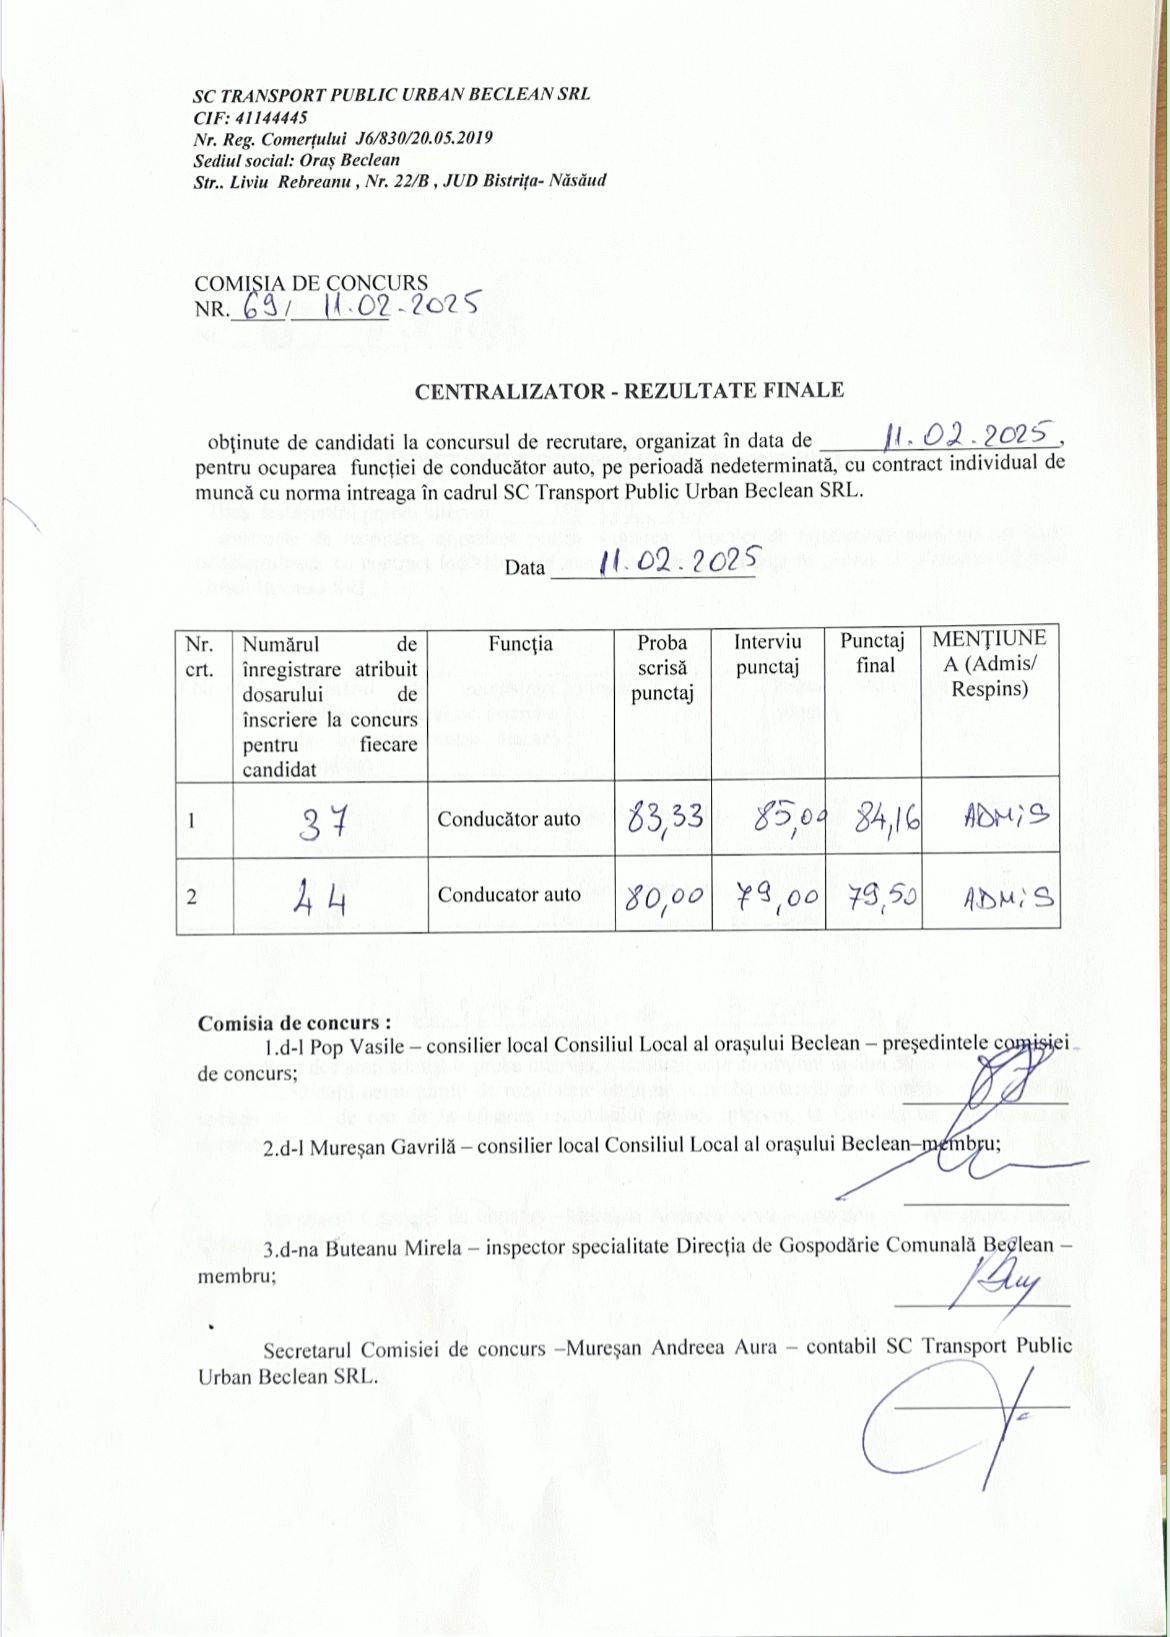 SC TRANSPORT PUBLIC URBAN BECLEAN SRL
CIF: 41144445
Nr. Reg. Comerțului J6/830/20.05.2019
Sediul social: Oraș Beclean
Str.. Liviu Rebreanu , Nr. 22/B , JUD Bistrița- Năsăud
COMISIA DE CONCURS
NR. 69 / 11.02.2025
CENTRALIZATOR - REZULTATE FINALE
obținute de candidati la concursul de recrutare, organizat în data de 11.02.2025,
pentru ocuparea funcției de conducător auto, pe perioadă nedeterminată, cu contract individual de
muncă cu norma intreaga în cadrul SC Transport Public Urban Beclean SRL.
Data 11.02.2025
Nr. crt.
Numărul de
înregistrare atribuit
dosarului de
înscriere la concurs
pentru fiecare
candidat
Funcția
Proba
scrisă
punctaj
Interviu
punctaj
Punctaj
final
MENȚIUNE
A (Admis/
Respins)
1 37 Conducător auto 83,33 85,00 84,16 ADMIS
2 44 Conducator auto 80,00 79,00 79,50 ADMIS
Comisia de concurs :
1.d-l Pop Vasile – consilier local Consiliul Local al orașului Beclean – președintele comisiei
de concurs;
2.d-l Mureșan Gavrilă – consilier local Consiliul Local al orașului Beclean–membru;
3.d-na Buteanu Mirela – inspector specialitate Direcția de Gospodărie Comunală Beclean –
membru;
Secretarul Comisiei de concurs –Mureșan Andreea Aura – contabil SC Transport Public
Urban Beclean SRL.